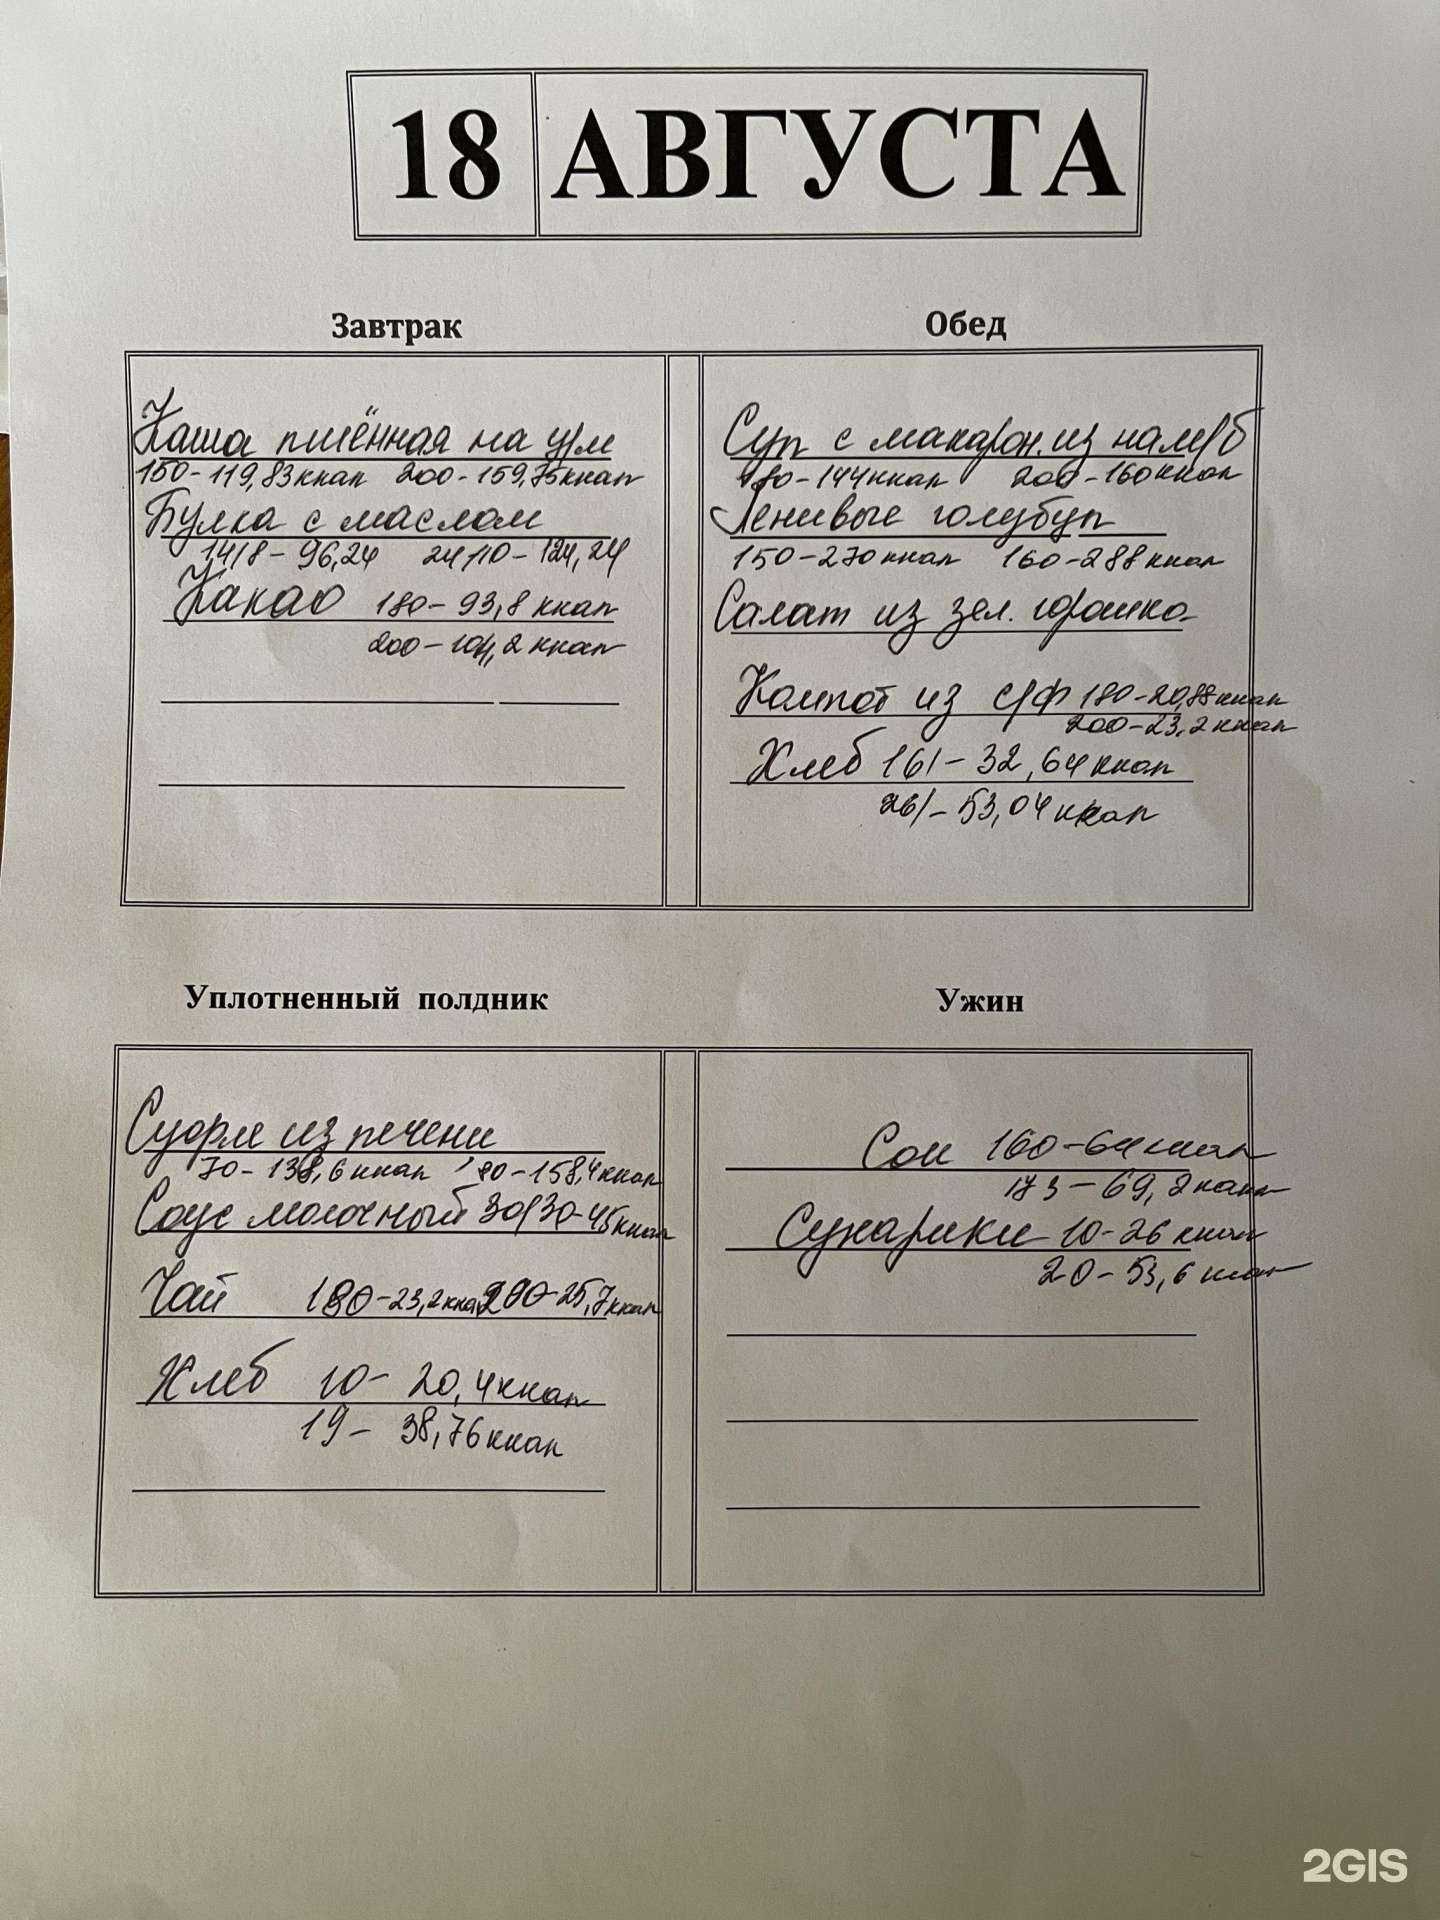 18 АВГУСТА
Завтрак
Каша пшённая на у/м
150-119,83 ккал 200-159,75 ккал
Булка с маслом
14/8-96,24 24/10-124,24
Какао 180-93,8 ккал
200-104,2 ккал
Обед
Суп с макарон. из на м/б
180-144 ккал 200-160 ккал
Ленивые голубцы
150-270 ккал 160-288 ккал
Салат из зел. горошка
Компот из с/ф 180-20,88 ккал
200-23,2 ккал
Хлеб 16/-32,64 ккал
26/-53,04 ккал
Уплотненный полдник
Суфле из печени
70-138,6 ккал 80-158,4 ккал
Соус молочный 30/30-45 ккал
Чай 180-23,2 ккал 200-25,7 ккал
Хлеб 10- 20,4 ккал
19- 38,76 ккал
Ужин
Сок 160-64 ккал
173-69,2 ккал
Сухарики 10-26 ккал
20-53,6 ккал
2GIS